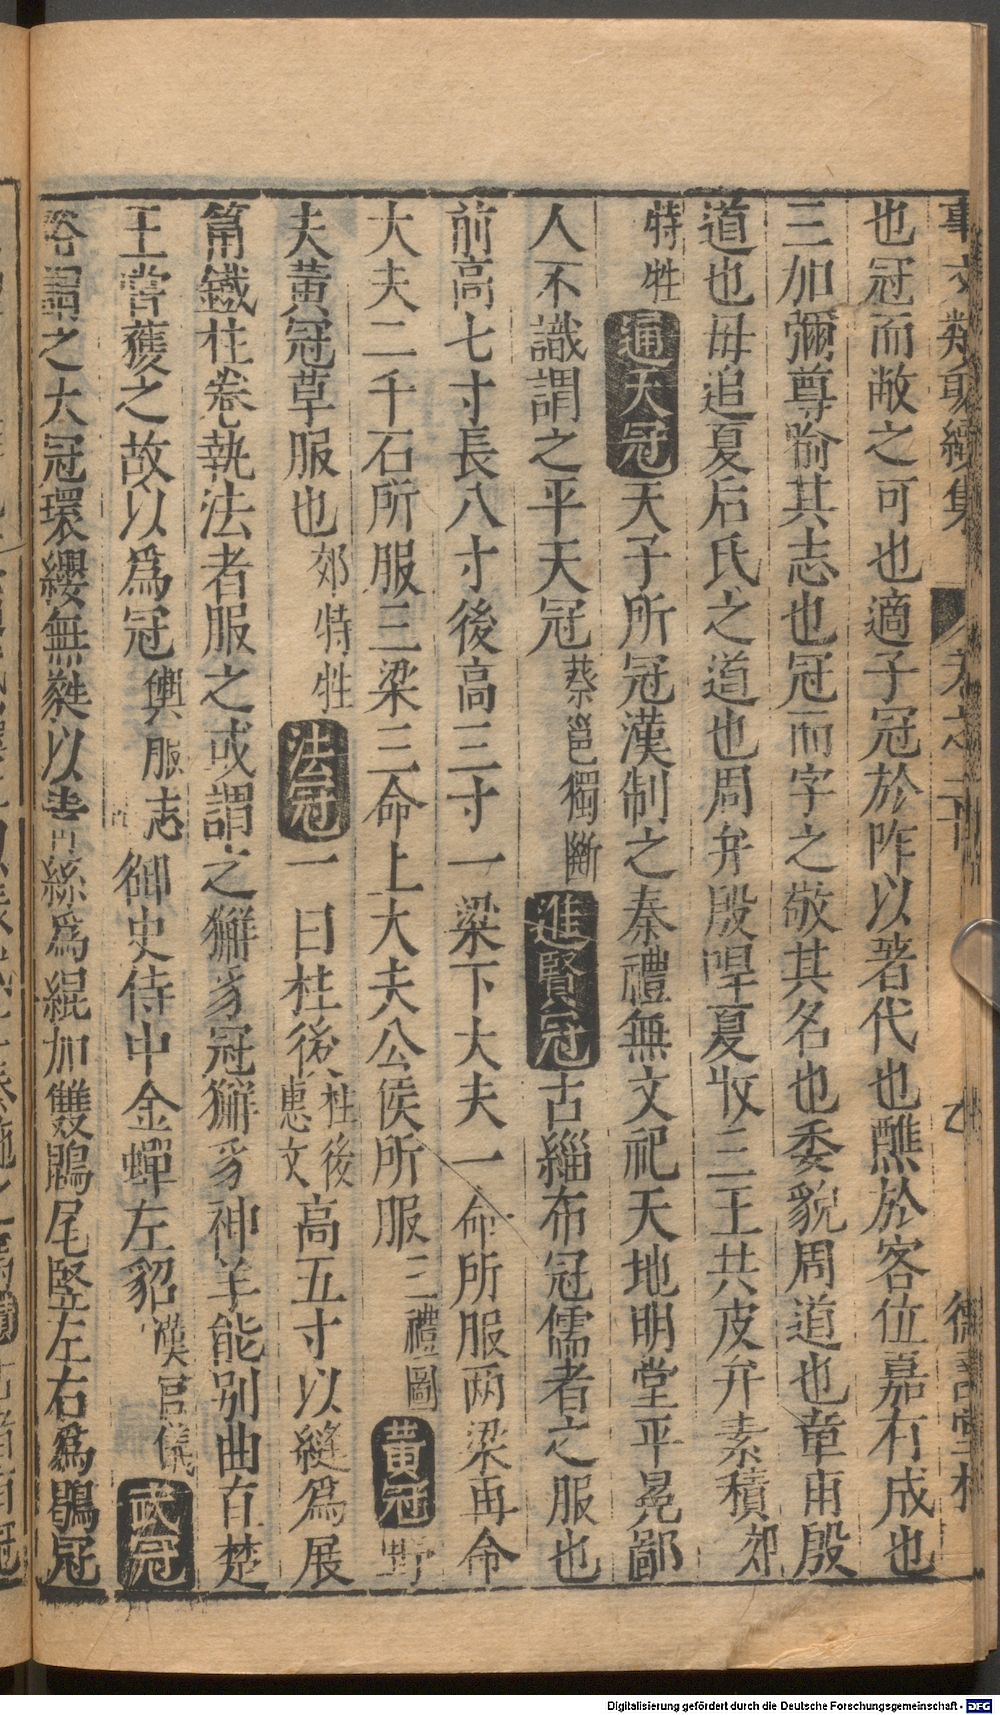 事文類聚續集 卷之二十 德壽堂梓
也冠而敝之可也適子冠於阼以著代也醮於客位嘉冇成也
三加彌尊喻其志也冠而字之敬其名也委貌周道也章甫殷
道也毋追夏后氏之道也周弁殷哻夏收三王共皮弁素積郊
特牲通天冠天子所冠漢制之秦禮無文祀天地明堂平冕鄙
人不識謂之平天冠蔡邕獨斷進賢冠古緇布冠儒者之服也
前高七寸長八寸後高三寸一梁下大夫一命所服两梁再命
大夫二千石所服三梁三命上大夫公侯所服三禮圖黃冠野
夫黃冠草服也郊特牲法冠一曰柱後柱後惠文高五寸以縫爲展
筩鐵柱卷執法者服之或謂之獬豸冠獬豸神羊能别曲直楚
王嘗獲之故以爲冠輿服志御史侍中金蟬左貂漢官儀武冠
俗謂之大冠環纓無蕤以青絲爲緄加雙鶡尾竪左右爲鶡冠
Digitalisierung gefördert durch die Deutsche Forschungsgemeinschaft - DFG